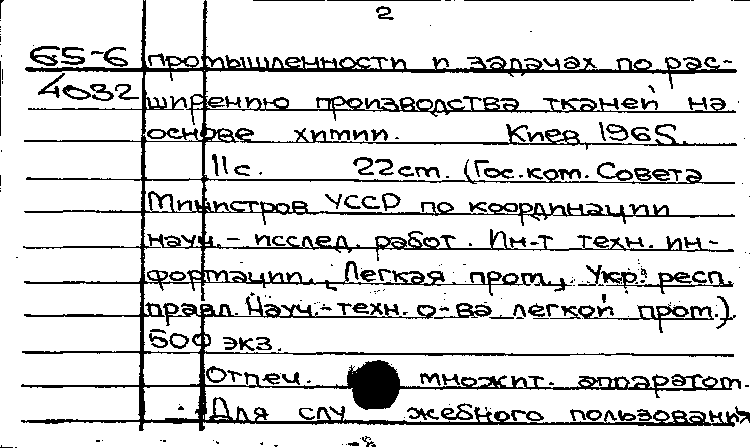 2
65-6 промышленности и задачах по рас-
4032 ширению производства тканей на
основе химии. Киев, 1965.
11с. 22см. (Гос.ком. Совета
Министров УССР по координации
науч.-исслед. работ. Ин-т техн. ин-
формации. Легкая пром., Укр. респ.
правл. Науч.-техн. о-ва легкой пром.).
500 экз.
Отпеч. множит. аппаратом.
Для служебного пользования